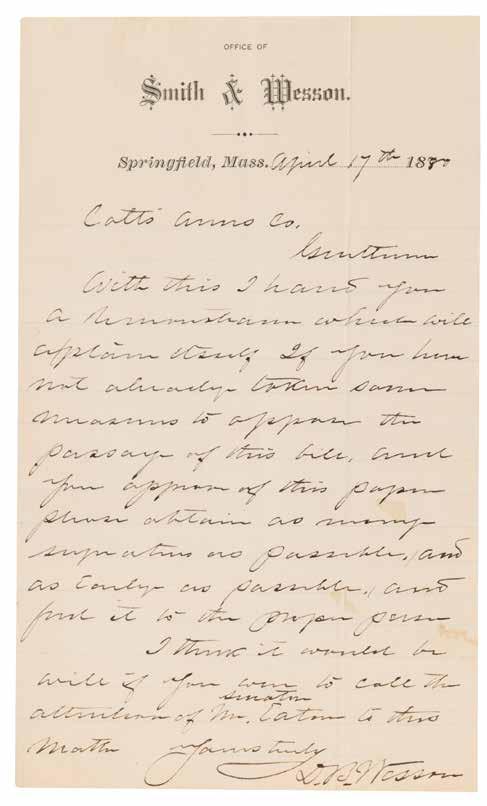 OFFICE OF
Smith & Wesson.
Springfield, Mass. April 17th 1880
Colts Arms Co.
Gentlemen
With this I hand you
a remonstrance which will
explain itself If you have
not already taken some
measures to oppose the
passage of this bill, and
you approve of this paper
please obtain as many
signatures as possible, and
as early as possible, and
it to the proper person
I think it would be
well if you were to call the
senator
attention of Mr. Eaton to this
matter Yours truly
D. B. Wesson